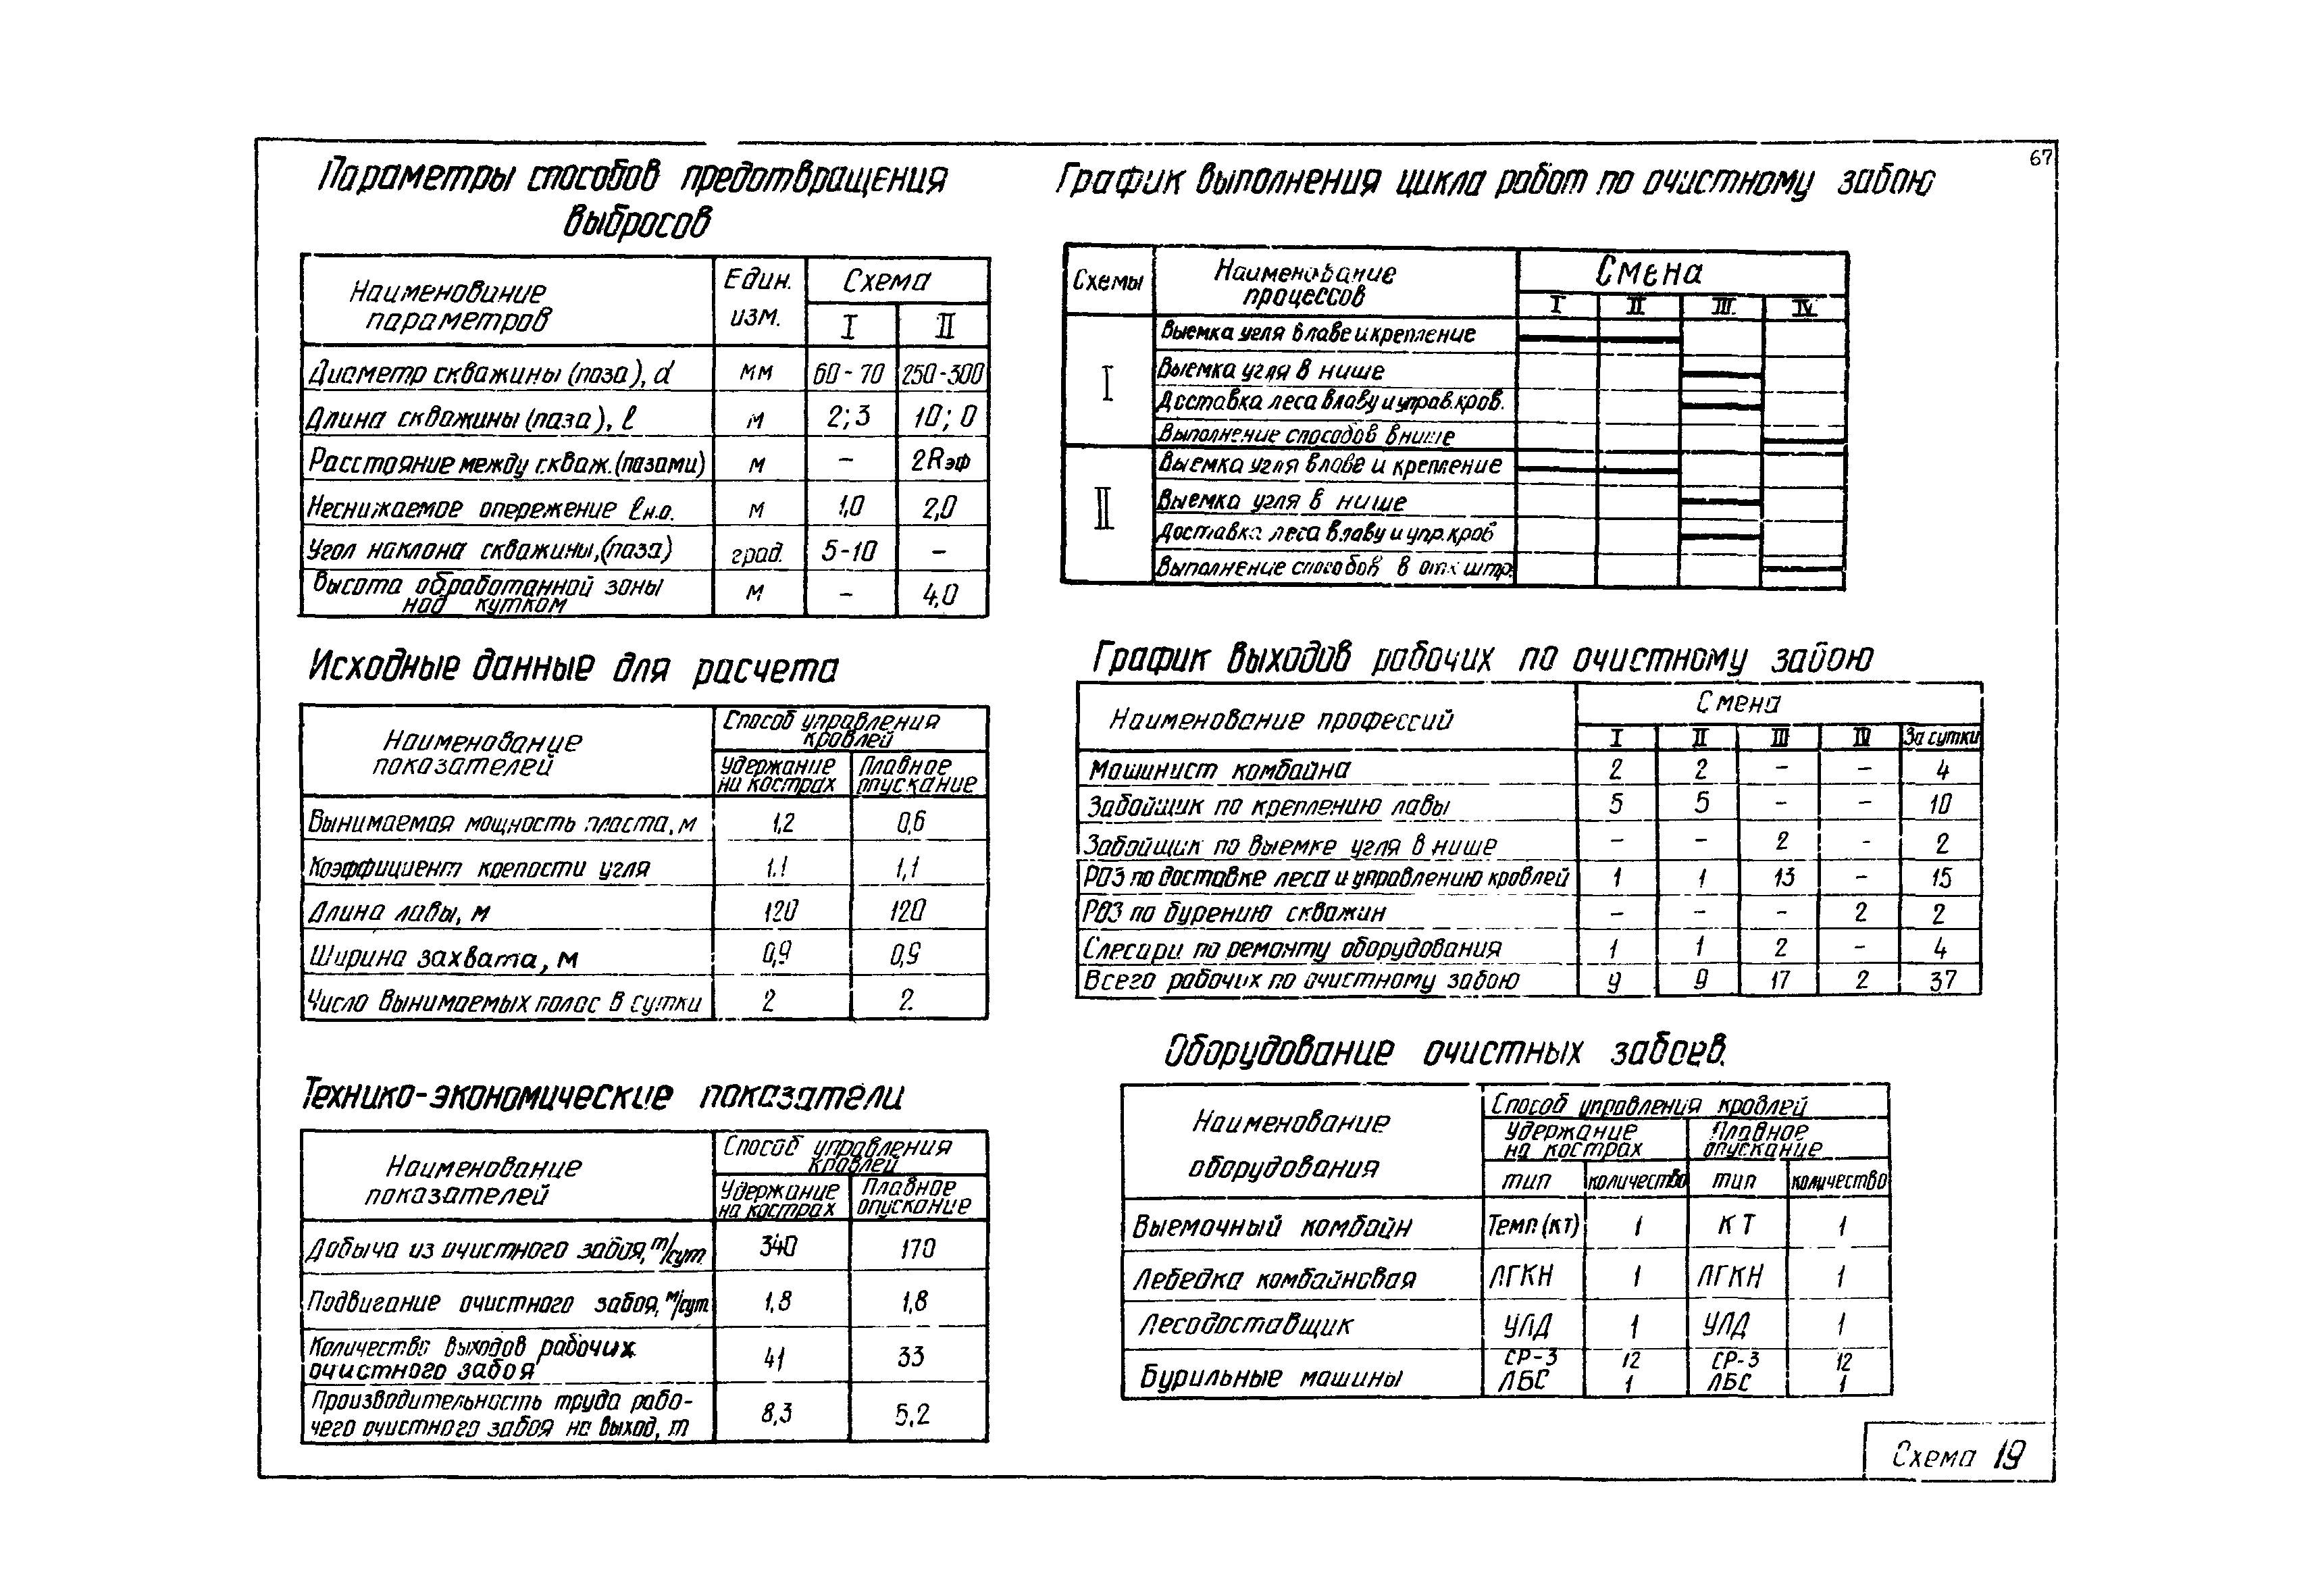 67
Параметры способов предотвращения
выбросов
Наименование параметров | Един. изм. | Схема
I | II
Диаметр скважины (паза), d | мм | 60-70 | 250-300
Длина скважины (паза), ℓ | м | 2; 3 | 10; 0
Расстояние между скваж. (пазами) | м | - | 2Rэф
Неснижаемое опережение ℓн.о. | м | 1,0 | 2,0
Угол наклона скважины, (паза) | град. | 5-10 | -
Высота обработанной зоны над кутком | м | - | 4,0
Исходные данные для расчета
Наименование показателей | Способ управления кровлей
Удержание на кострах | Плавное опускание
Вынимаемая мощность пласта, м | 1,2 | 0,6
Коэффициент крепости угля | 1.1 | 1,1
Длина лавы, м | 120 | 120
Ширина захвата, м | 0,9 | 0,9
Число вынимаемых полос в сутки | 2 | 2
Технико-экономические показатели
Наименование показателей | Способ управления кровлей
Удержание на кострах | Плавное опускание
Добыча из очистного забоя, т/сут. | 340 | 170
Подвигание очистного забоя, м/сут | 1,8 | 1,8
Количество выходов рабочих очистного забоя | 41 | 33
Производительность труда рабо-
чего очистного забоя на выход, т | 8,3 | 5,2
График выполнения цикла работ по очистному забою
Схемы | Наименование процессов | Смена
I | II | III | IV
I
Выемка угля в лаве и крепление
Выемка угля в нише
Доставка леса в лаву и управ. кров.
Выполнение способов в нише
II
Выемка угля в лаве и крепление
Выемка угля в нише
Доставка леса в лаву и упр. кров
Выполнение способов в отк штр.
График выходов рабочих по очистному забою
Наименование профессий | Смена
I | II | III | IV | За сутки
Машинист комбайна | 2 | 2 | - | - | 4
Забойщик по креплению лавы | 5 | 5 | - | - | 10
Забойщик по выемке угля в нише | - | - | 2 | - | 2
РОЗ по доставке леса и управлению кровлей | 1 | 1 | 13 | - | 15
РОЗ по бурению скважин | - | - | - | 2 | 2
Слесари по ремонту оборудования | 1 | 1 | 2 | - | 4
Всего рабочих по очистному забою | 9 | 9 | 17 | 2 | 37
Оборудование очистных забоев.
Наименование оборудования | Способ управления кровлей
Удержание на кострах | Плавное опускание
тип | количество | тип | количество
Выемочный комбайн | Темп (КТ) | 1 | КТ | 1
Лебедка комбайновая | ЛГКН | 1 | ЛГКН | 1
Лесодоставщик | УЛД | 1 | УЛД | 1
Бурильные машины | СР-3 | 12 | СР-3 | 12
ЛБС | 1 | ЛБС | 1
Схема 19